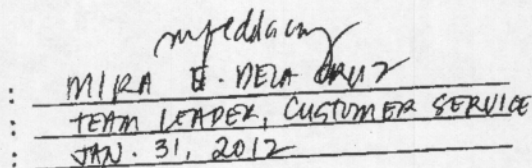 : MIRA E. DELA CRUZ
: TEAM LEADER, CUSTOMER SERVICE
: JAN. 31, 2012